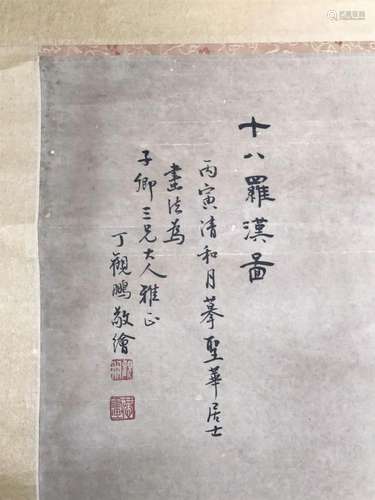 十八羅漢圖
丙寅清和月摹聖華居士
畫法為
子卿三兄大人雅正
丁觀鵬敬繪